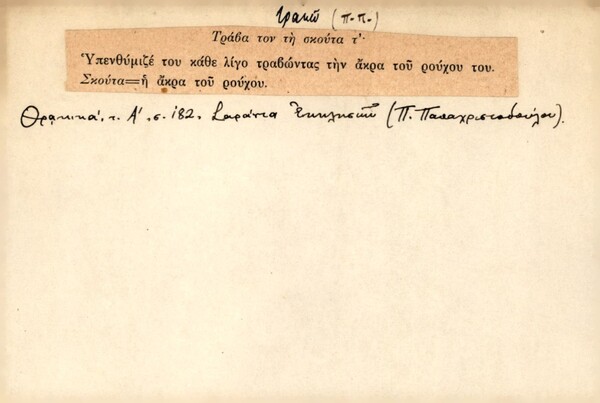 τραβῶ (π.π.)
Τράβα τον τὴ σκούτα τ'·
Ὑπενθύμιζέ του κάθε λίγο τραβώντας τὴν ἄκρα τοῦ ρούχου του.
Σκούτα=ἡ ἄκρα τοῦ ρούχου.
Θρᾳκικά, τ. Α', σ. 182, Σαράντα Ἐκκλησιῶν (Π. Παπαχριστοδούλου).